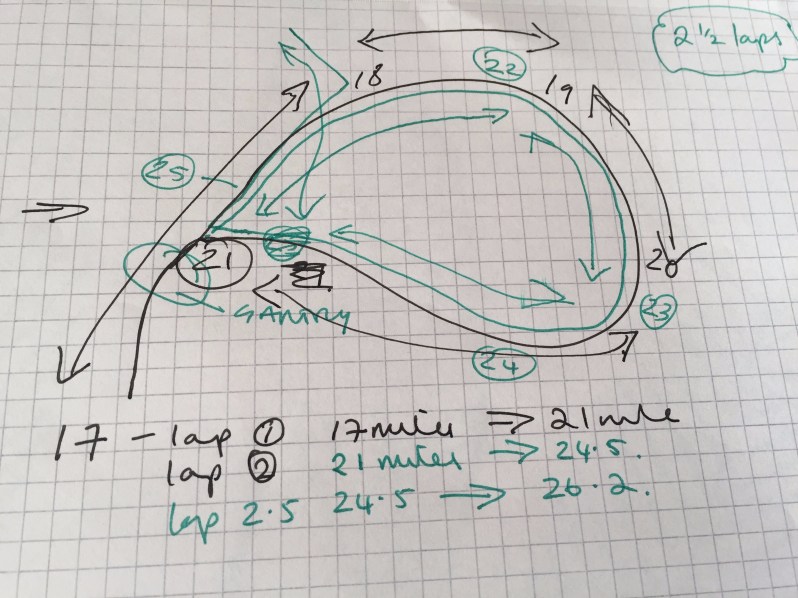 2 1/2 laps
22
18
19
25
21
20
GANTRY
23
24
17 - lap ① 17 miles ⇒ 21 mile
lap ② 21 miles → 24.5.
lap 2.5 24.5 → 26.2.